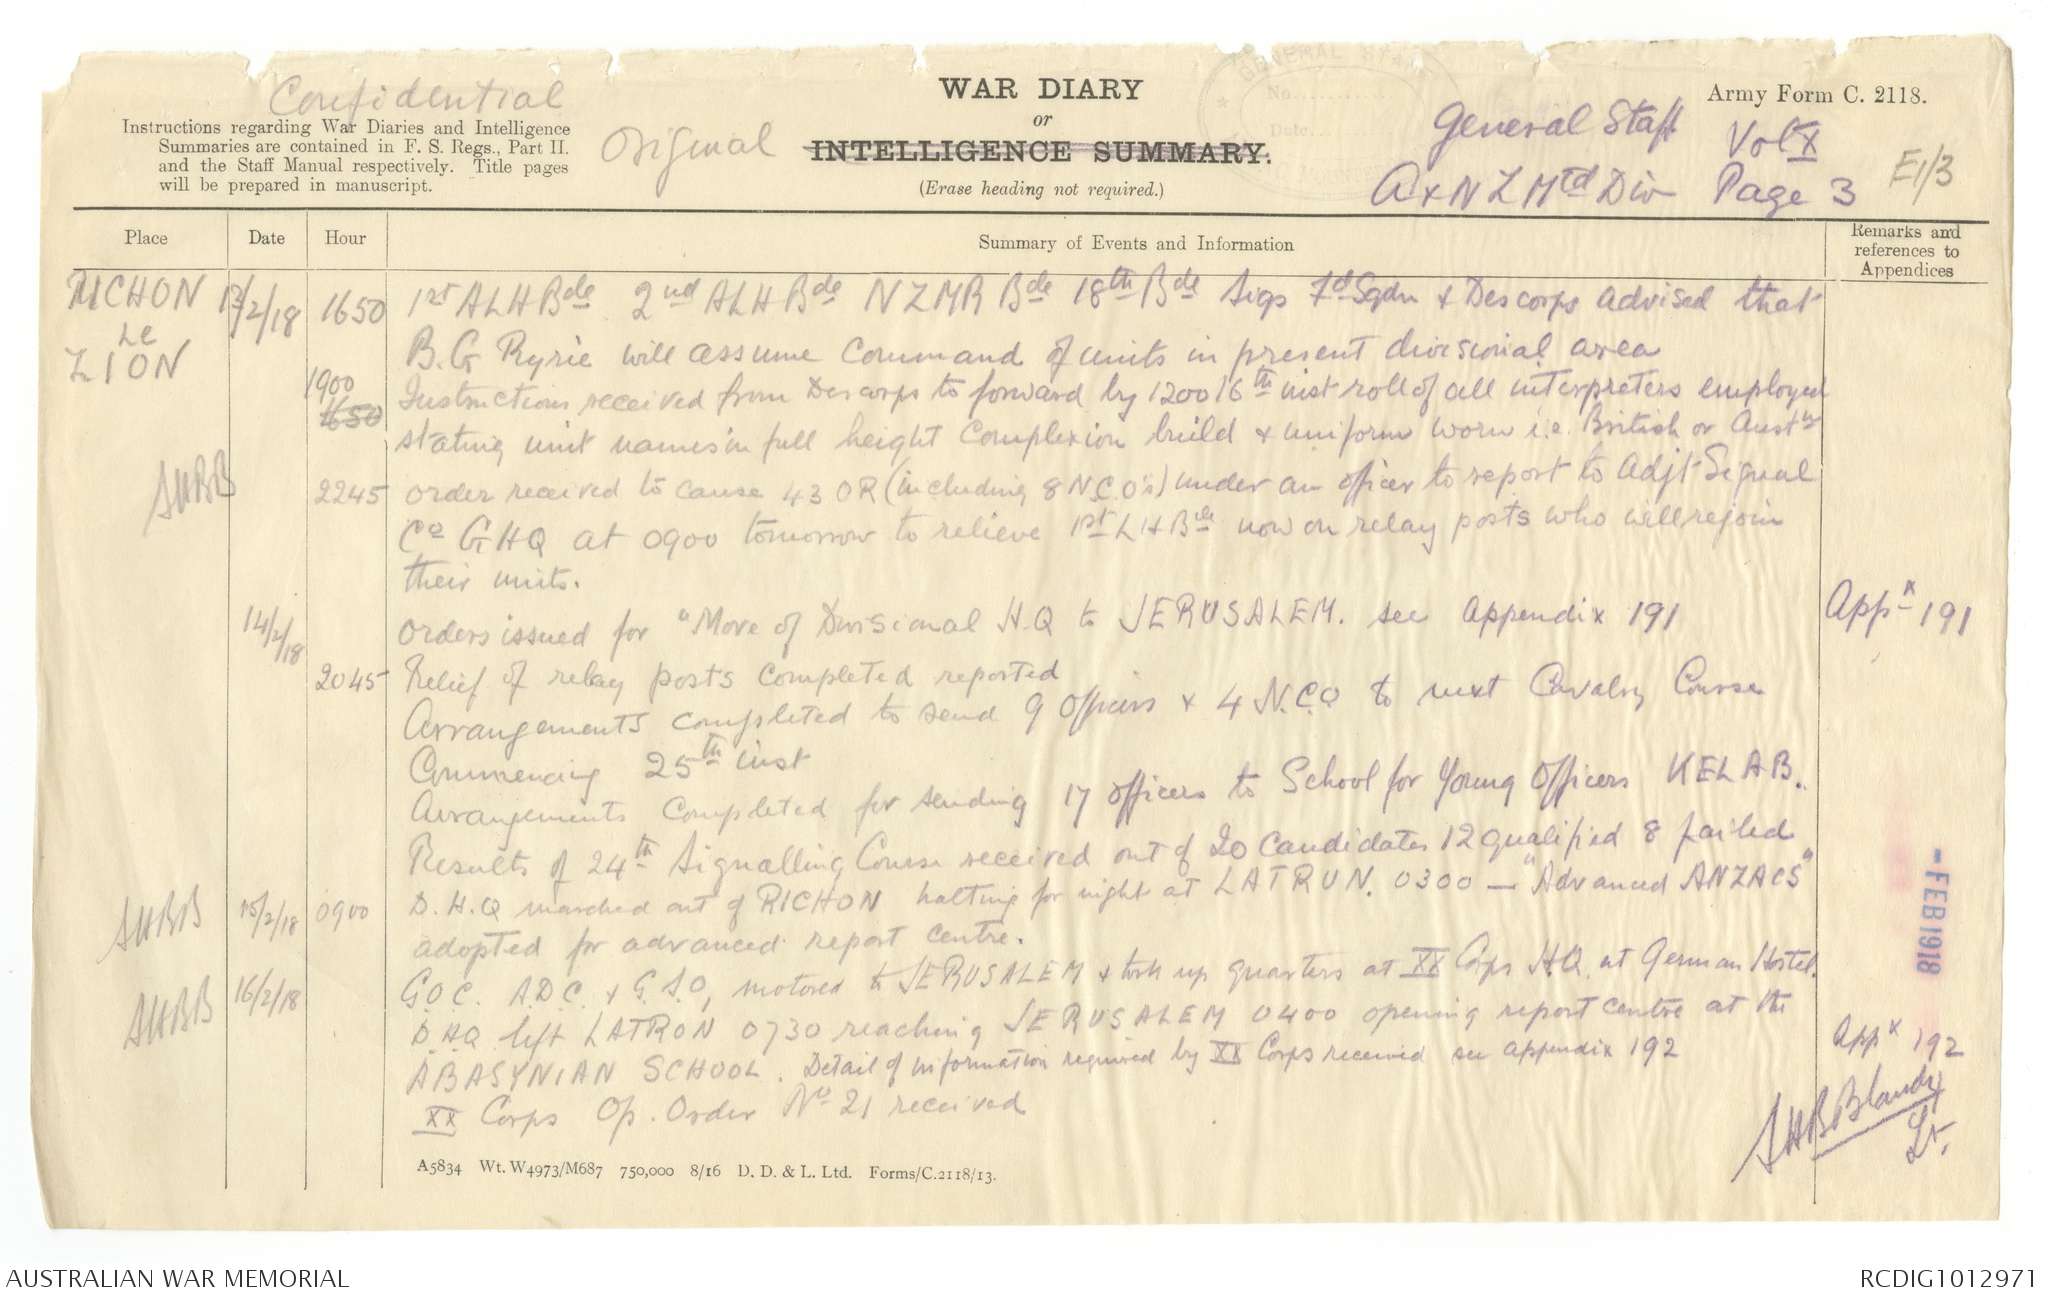 Confidential
Instructions regarding War Diaries and Intelligence
Summaries are contained in F. S. Regs., Part II.
and the Staff Manual respectively. Title pages
will be prepared in manuscript.
Original
WAR DIARY
or
INTELLIGENCE SUMMARY.
(Erase heading not required.)
GENERAL STAFF
No.
Date
Army Form C. 2118.
General Staff Vol X
A & N Z Mtd Div Page 3
E1/3
Place Date Hour Summary of Events and Information Remarks and references to Appendices
RICHON Le ZION
13/2/18 1650 1st ALH Bde 2nd ALH Bde NZMR Bde 18th Bde Sigs Fd Sqdn & Descorps advised that
B.G Ryrie will assume command of units in present divisional area
1900 1650 Instructions received from Descorps to forward by 1200 16th inst roll of all interpreters employed
stating unit names in full height complexion build & uniform worn i.e. British or Austn
SHBB 2245 order received to cause 43 OR (including 8 N.C.O's) under an officer to report to Adjt Signal
Co GHQ at 0900 tomorrow to relieve 1st LH Bde now on relay posts who will rejoin
their units.
14/2/18 Orders issued for "Move of Divisional H.Q to JERUSALEM. see appendix 191 Appx 191
2045 Relief of relay posts completed reported
Arrangements completed to send 9 officers & 4 N.C.O to next Cavalry Course
Commencing 25th inst
Arrangements completed for sending 17 officers to School for Young Officers KELAB.
Results of 24th Signalling Course received out of 20 candidates 12 qualified 8 failed
SHBB 15/2/18 0900 D.H.Q marched out of RICHON halting for night at LATRUN. 0300 — "Advanced ANZACS"
adopted for advanced report centre.
SHBB 16/2/18 G.O.C. A.D.C. & G.S.O, motored to JERUSALEM & took up quarters at XX Corps H.Q. at German Hostel.
D.H.Q. left LATRON 0730 reaching JERUSALEM 0400 opening report centre at the
ABASYNIAN SCHOOL. Detail of information required by XX Corps received see appendix 192 Appx 192
XX Corps Op. Order No 21 received
SHBBlandy
Lt.
- FEB 1918
A5834 Wt. W4973/M687 750,000 8/16 D. D. & L. Ltd. Forms/C.2118/13.
AUSTRALIAN WAR MEMORIAL
RCDIG1012971